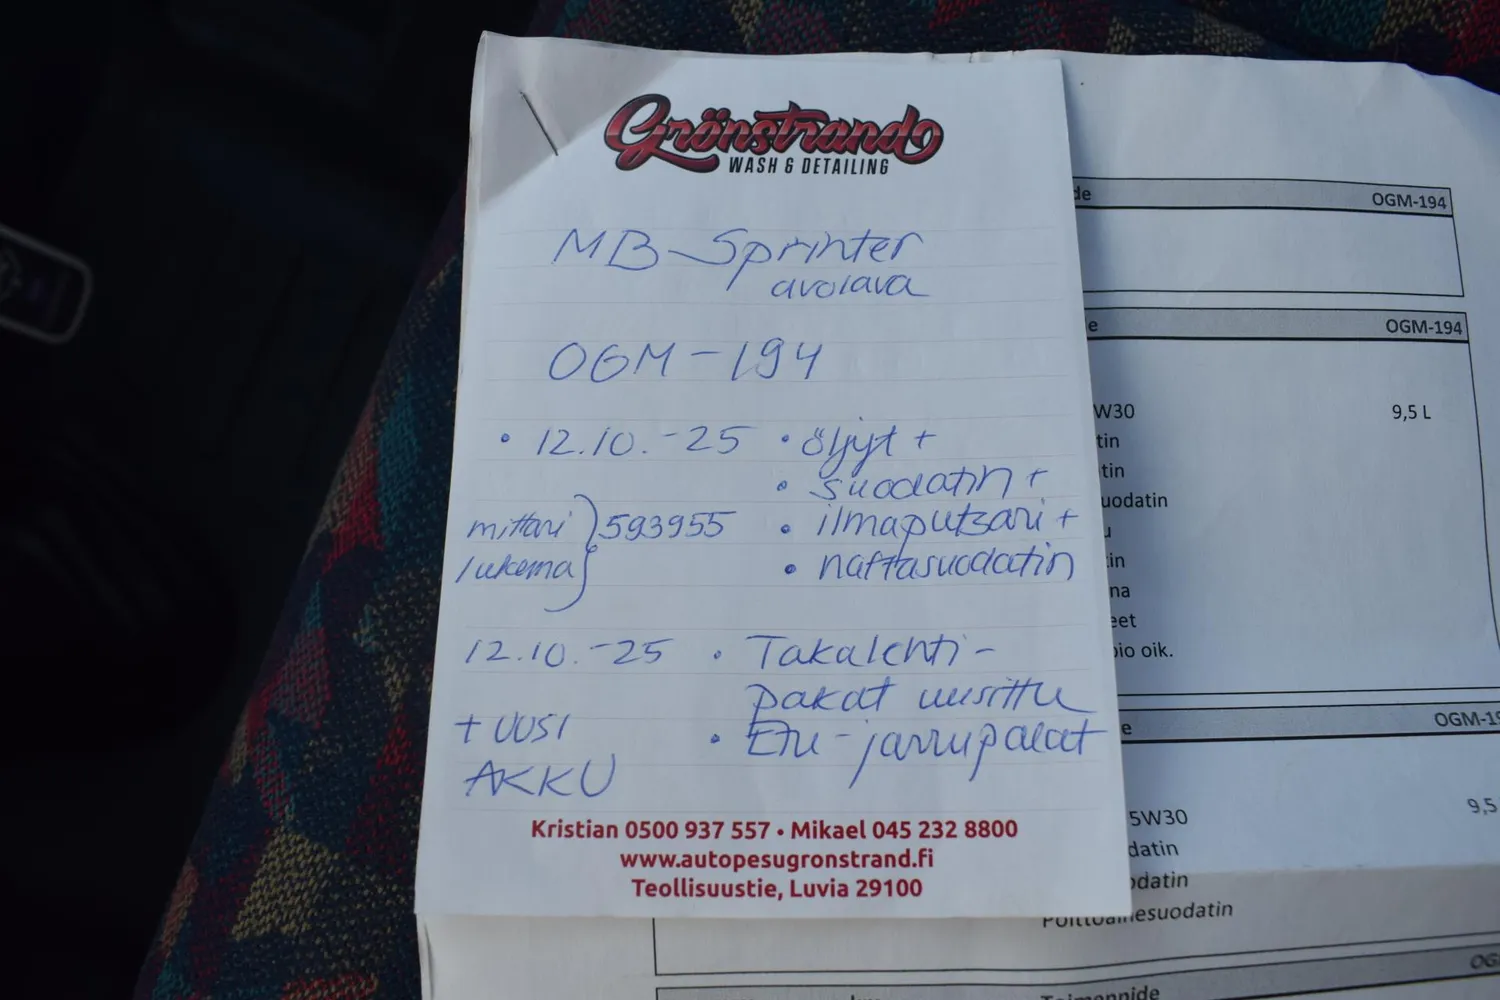 Grönstrand
WASH & DETAILING
MB-Sprinter
avolava
OGM-194
• 12.10.-25 • öljyt +
• suodatin +
mittari } 593955 • ilmaputsari +
lukema • naftasuodatin
12.10.-25 • Takalehti-
pakat uusittu
+ UUSI • Etu-jarrupalat
AKKU
Kristian 0500 937 557 • Mikael 045 232 8800
www.autopesugronstrand.fi
Teollisuustie, Luvia 29100
de OGM-194
e OGM-194
W30 9,5 L
tin
tin
uodatin
u
in
na
eet
pio oik.
e OGM-19
5W30 9,5
datin
odatin
Polttoainesuodatin
OG
Toimenpide